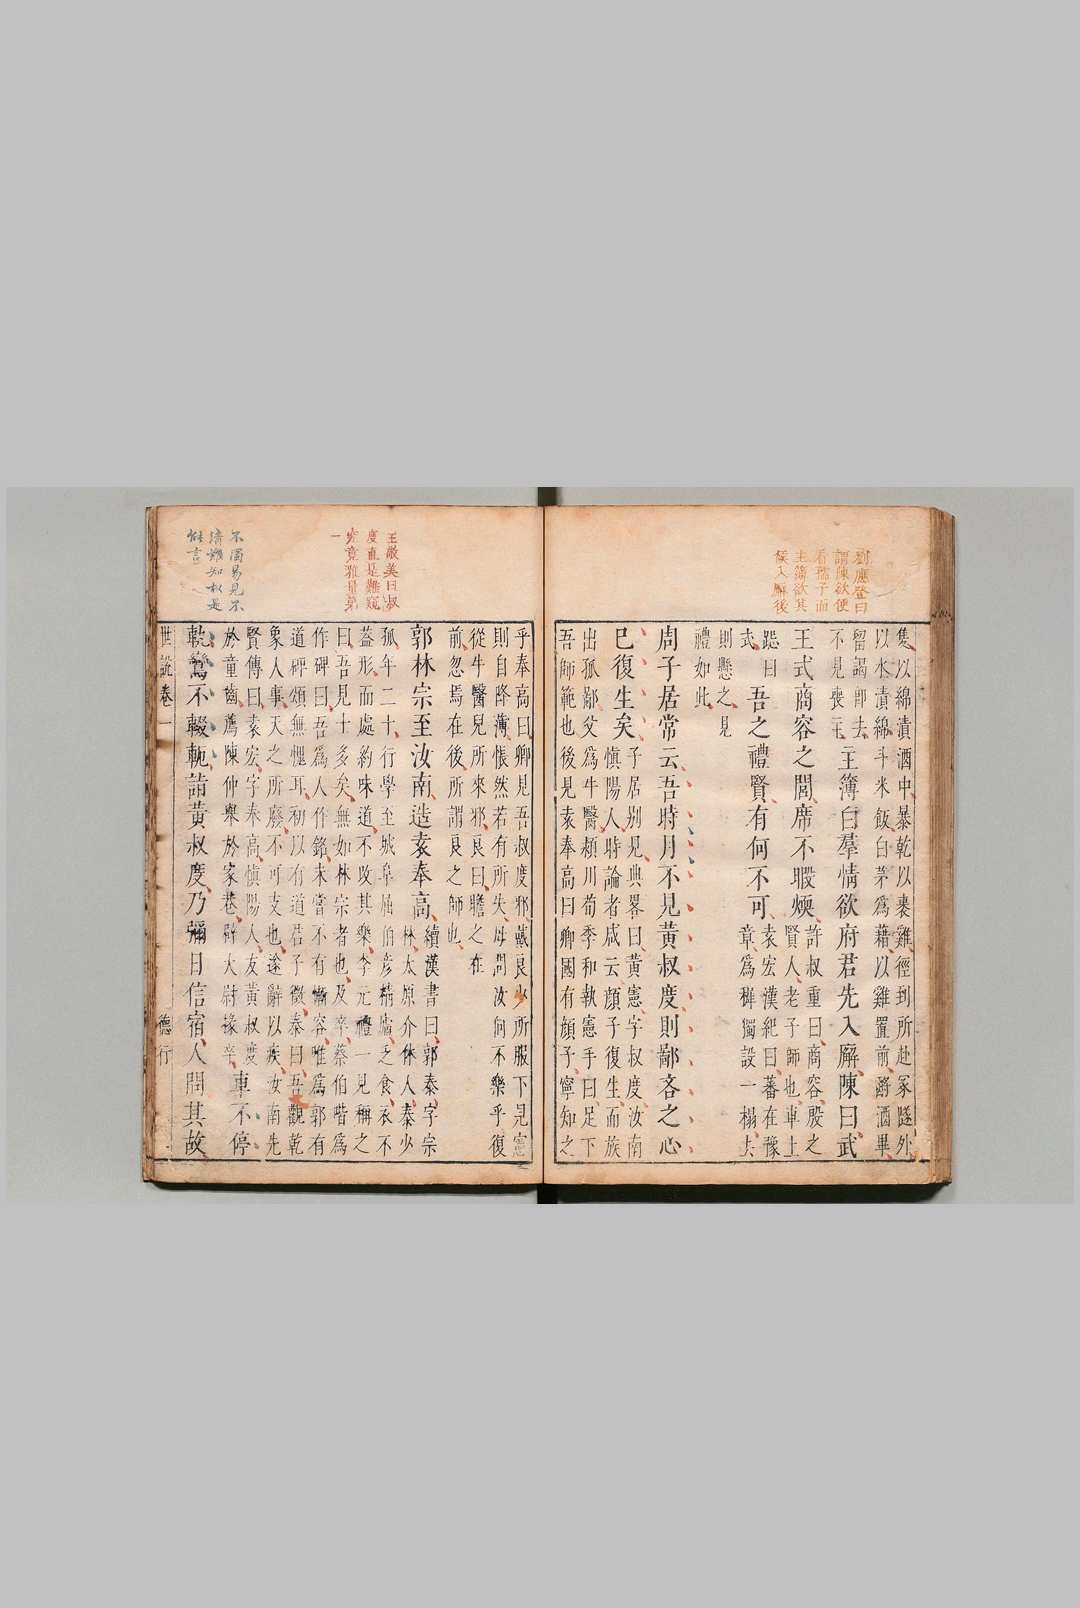 劉應登曰
謂陳欲便
看孺子而
主簿欲其
候入廨後
隻以綿漬酒中暴乾以裹雞徑到所赴冢隧外
以水漬綿斗米飯白茅爲藉以雞置前酹酒畢
留謁即去
不見喪主
主簿白羣情欲府君先入廨陳曰武
王式商容之閭席不暇煖
許叔重曰商容殷之
賢人老子師也車上
跽曰
式
吾之禮賢有何不可
袁宏漢紀曰蕃在豫
章爲穉獨設一榻去
則懸之見
禮如此
周子居常云吾時月不見黃叔度則鄙吝之心
已復生矣
子居別見典畧曰黃憲字叔度汝南
慎陽人時論者咸云顏子復生而族
出孤鄙父爲牛醫潁川荀季和執憲手曰足下
吾師範也後見袁奉高曰卿國有顏子寧知之
王敬美曰叔
度直是難窺
究竟雅量第
一
不濁易見不
清難知故是
言
乎奉高曰卿見吾叔度邪戴良少所服下見憲
則自降薄悵然若有所失母問汝何不樂乎復
從牛醫兒所來邪良曰瞻之在
前忽焉在後所謂良之師也
郭林宗至汝南造袁奉高
續漢書曰郭泰字宗
林太原介休人泰少
孤年二十行學至城阜屈伯彥精廬乏食衣不
蓋形而處約味道不改其樂李元禮一見稱之
曰吾見士多矣無如林宗者也及卒蔡伯喈爲
作碑曰吾爲人作銘未嘗不有慚容唯爲郭有
道碑頌無愧耳初以有道君子徵泰曰吾觀乾
象人事天之所廢不可支也遂辭以疾汝南先
賢傳曰袁宏字奉高慎陽人友黃叔度
於童齒薦陳仲舉於家巷辟大尉掾卒
車不停
軌鸞不輟軛詣黃叔度乃彌日信宿人問其故
世說卷一 德行